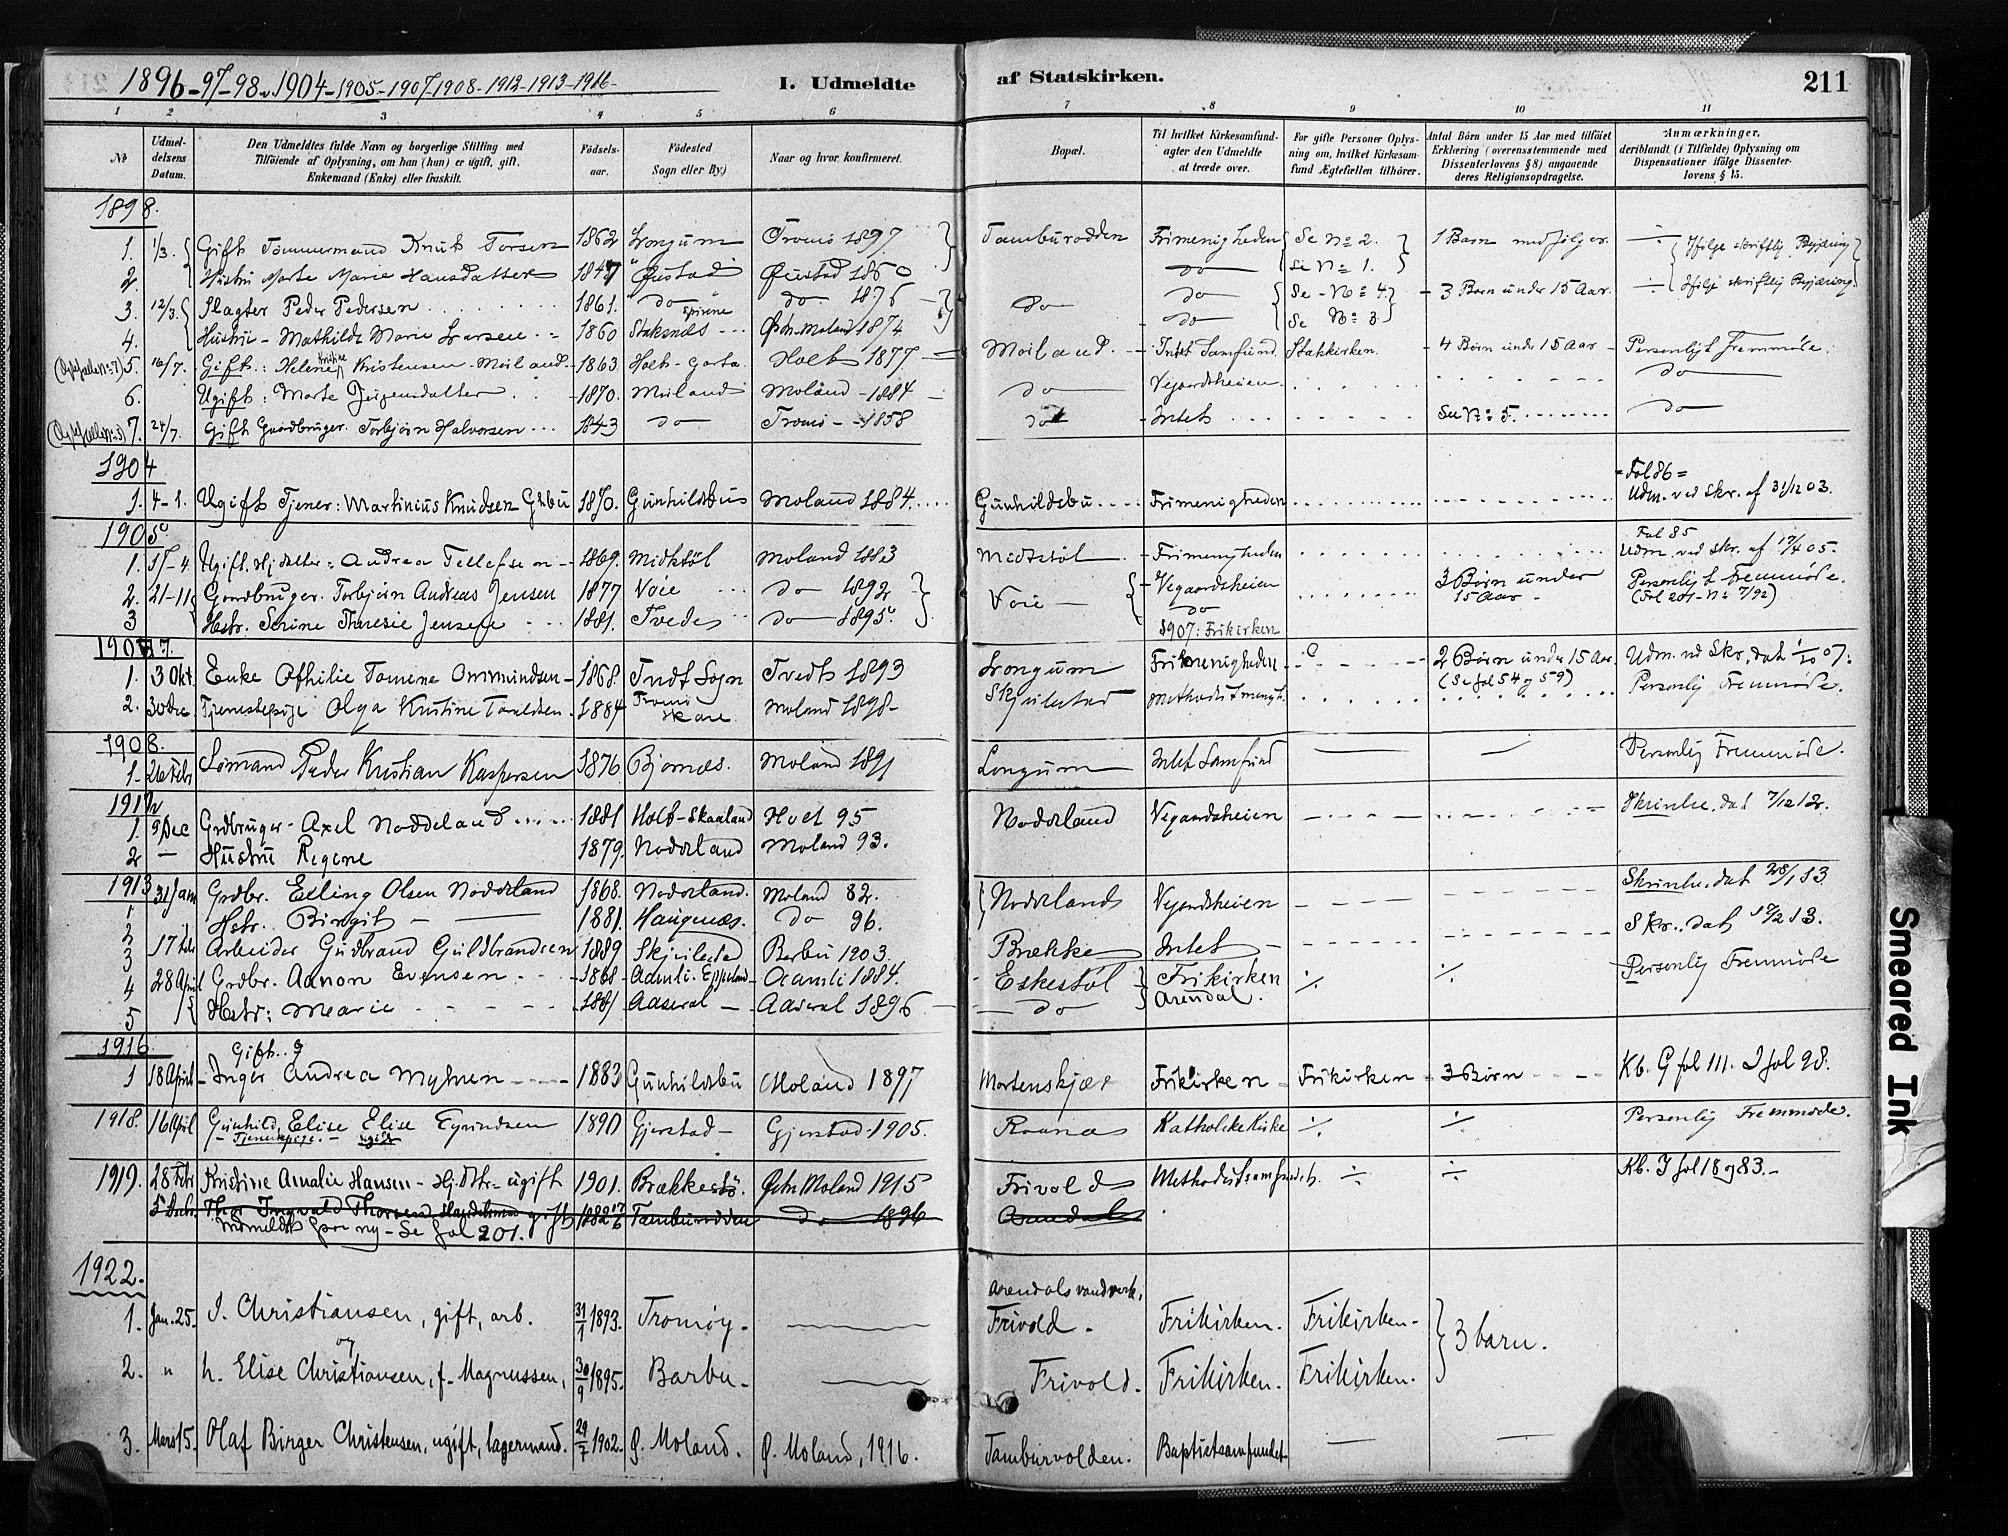 1896-97-98-1904-1905-1907-1908-1912-1913-1916-
I. Udmeldte af Statskirken. 211
1 2 3 4 5 6 7 8 9 10 11
№ | Udmeldelsens Datum. | Den Udmeldtes fulde Navn og borgerlige Stilling med Tilföiende af Oplysning, om han (hun) er ugift, gift, Enkemand (Enke) eller fraskilt. | Födselsaar. | Födested Sogn eller By.) | Naar og hvor konfirmeret. | Bopæl. | Til hvilket Kirkesamfund- agter den Udmeldte at træde over. | For gifte Personer Oplysning om, hvilket Kirkesamfund Ægtefællen tilhörer. | Antal Börn under 15 Aar med tilföiet Erklæring (overensstemmende med Dissenterlovens § 8) angaaende deres Religionsopdragelse. | Anmærkninger, deriblandt (i Tilfælde) Oplysning om Dispensationer ifölge Dissenterlovens § 15.
1898.
1. 1/3. Gift Tømmermand Knut Torsen 1862 Longum Tromø 1897 Tamburodden Frimenigheden Se No 2. 1 Barn medfølger.
2. Hustru Marte Marie Hansdatter 1847 Øustad Øustad 1860 do Se No 1.
3. 12/3. Slagter Peder Pedersen 1861. do do 1876 do do Se No 4. 3 Børn under 15 Aar.
4. Hustru Mathilde Marie Larsen 1860 Staksnæs Østr. Moland 1874 do Se No 3.
5. 16/7. Gift: Helene Kristine Kristensen Moiland 1863 Holt Holt 1877 Moiland. Intet Samfund Statskirken. 4 Børn under 15 Aar Personligt Fremmøde.
6. Ugift: Marte Jørgensdatter 1870. Moiland Moland 1884 do Vegardsheien do
7. 24/7. Gift Gaardbruger Torbjørn Halvorsen 1843 do Tromø 1858 do Intet See No 5. do
1904
1. 4-1. Ugift Tjener: Martinius Knudsen G.bu 1870. Gunhildsbu Moland 1884. Gunhildsbu Frimenigheden Fol 86 Udm. ved Skr. af 31/12 03.
1905
1. 17-4 Ugift. Hj.datter: Andrea Tellefsen 1869. Midtstøl Moland 1883 Midtstøl Frimenigheden Fol 85 Udm. ved Skr. af 17/4 05.
2. 21-11 Gaardbruger. Torbjørn Andreas Jensen 1877 Voie do 1892 Voie Vegaardsheien 3 Børn under 15 Aar Personligt Fremmøde. (Fol 201 - No 7/92)
3 Hstr. Serine Theresie Jensen 1881. Tvede do 1895 do 1907: Frikirken
1907.
1. 3 Okt. Enke Othilie Tomine Ommundsen 1868. Tvedt Sogn Tvedt 1893 Longum Frimenigheden 2 Børn under 15 Aar (Se fol 54 og 59) Udm. ved Skr. dat 1/10 07.
2. 30 Dec Tjenestepige Olga Kristine Taraldsen 1884 Tromø Moland 1898 Skjulestad Methodistmenigh. Personlig Fremmøde.
1908.
1- 26 Febr Sømand Peder Kristian Kaspersen 1876 Bjornæs. Moland 1891 Longum Intet Samfund Personlig Fremmøde.
1912
1. 9 Dec Grdbruger - Axel Noddeland 1881 Holt-Skaaland Holt 95 Noddeland Vegaardsheien Skrivelse. dat 7/12 12.
2 Hustru Regine 1879. Noddeland Moland 93.
1913
1 31 Jan Grdbr. Elling Olsen Noddeland 1868. Noddeland. Moland 82. Noddeland Vegardsheien Skrivelse. dat 28/1 13
2 Hstr. Birgit 1881. Haugenæs. do 96.
3 17 Febr Arbeider Gudbrand Guldbrandsen 1889 Skjulestad Barbu 1903. Brække Intet Skr. dat 17/2 13.
4 28 April Grdbr. Aanon Evensen 1868 Aamli Aamli 1884. Eskestøl Frikirken Arendal. Personlig Fremmøde
5 Hstr: Marie 1881 Aaseral Aaseral 1896 do
1916.
Gift.
1 18 April Inger Andrea Myhren 1883 Gunhildsbu Moland 1897 Mortenskjær Frikirken Frikirken 3 Børn Kb. G fol 111. I fol 98.
1918. 16 April Gunhild Elise Elise Eyvindsen 1890 Gjerstad Gjerstad 1905. Raanæs Katholske Kirke Personlig Fremmøde.
Tjenestepige. ugift
1919. 28 Febr Kristine Amalie Hansen - Hj. Dtr - ugift 1901. Brækkestø. Østr. Moland 1915 Frivold Methodistsamfundet. Kb. I fol 18 og 83.
5 Decbr. Thor Ingvald Thorsen Handelsmand gift 1882 17/6 Tamburodden do 1896 Arendal
Indmeldt paa ny - Se fol 201.
1922.
1. Jan. 25. J. Christiansen, gift, arb. 31/1 1893. Tromøy. Arendals vandverk, Frivold. Frikirken. Frikirken. 3 barn.
og
2. " h. Elise Christiansen, f. Magnussen, 30/9 1895. Barbu. Frivold. Frikirken. Frikirken.
3. Mars 15. Olaf Birger Christensen, ugift, lagermand. 29/7 1902. Ø. Moland. Ø. Moland, 1916. Tamburvolden. Baptistsamfundet
Smeared Ink